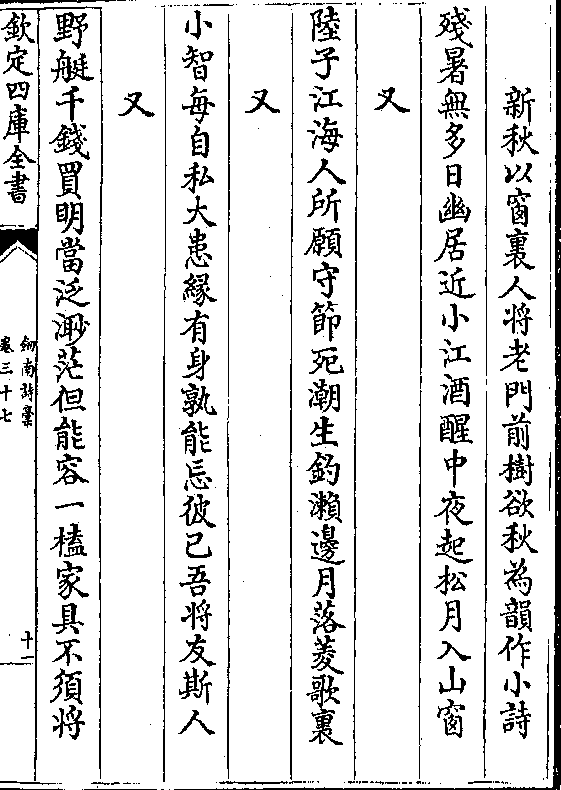 新秋以窗裏人将老門前樹欲秋為韻作小詩
殘暑無多日幽居近小江酒醒中夜起松月入山窗
又
陸子江海人所願守節死潮生釣瀨邊月落菱歌裏
又
小智每自私大患縁有身孰能忘彼己吾将友斯人
又
野艇千錢買明當泛渺茫但能容一榼家具不須将
欽定四庫全書
劒南詩稾
卷三十七
十一